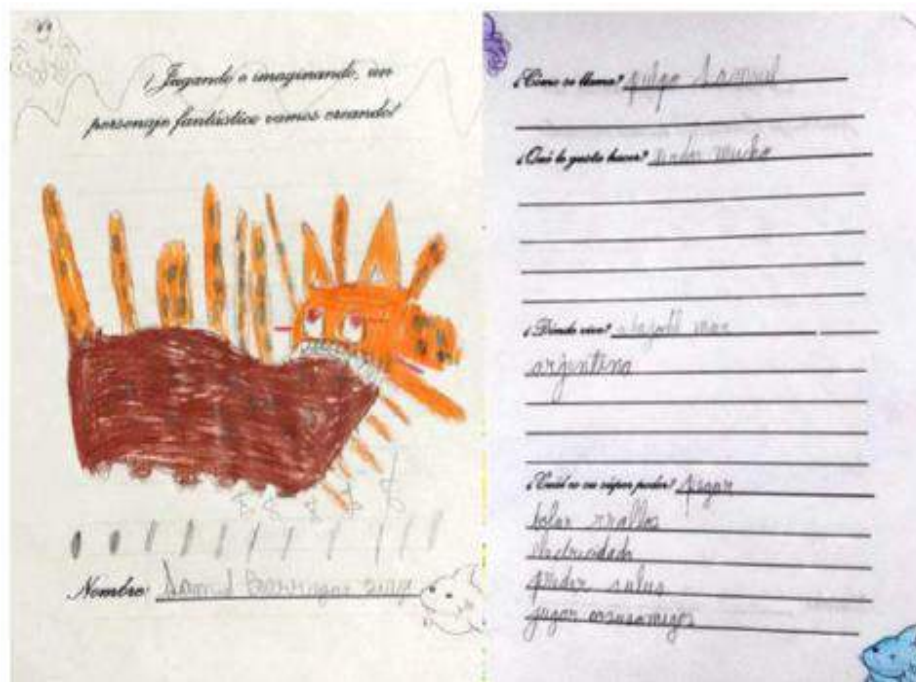 ¡Jugando e imaginando, un
personaje fantástico vamos creando!
Nombre: Samuel Barrigas
¿Cómo se llama? pulpo Samuel
¿Qué le gusta hacer? nadar mucho
¿Dónde vive? mar
arjentino
¿Cuál es su súper poder? pegar
bolar rrallos
electricidad
poder
jugar